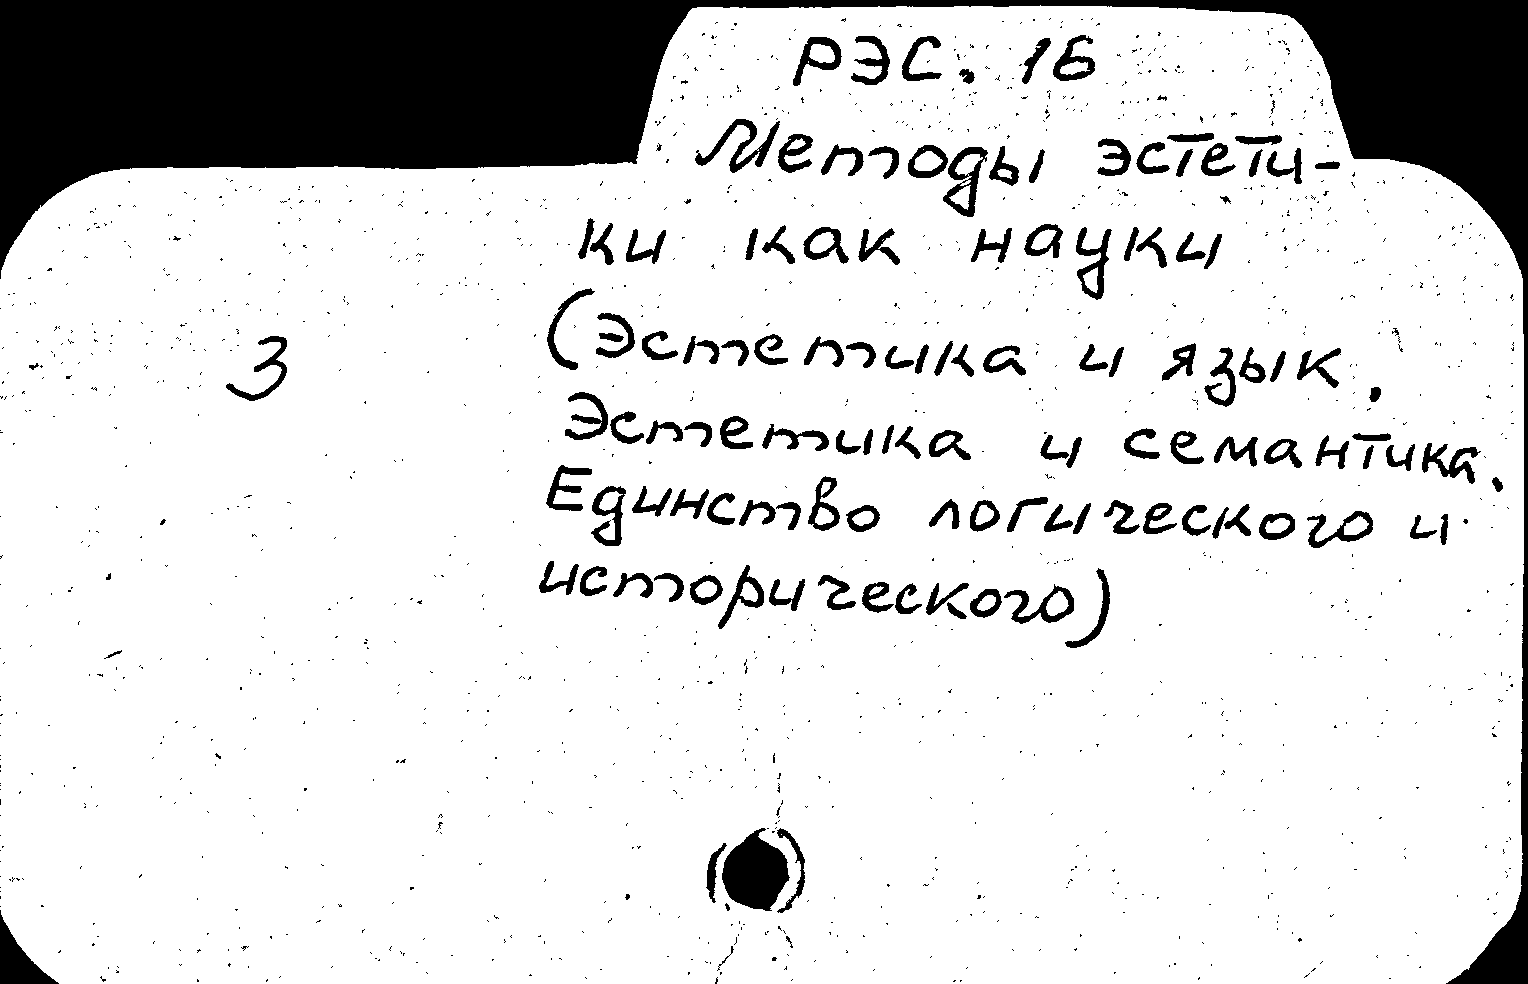 РЭС. 16
Методы эстети-
ки как науки
(Эстетика и язык.
3
Эстетика и семантика.
Единство логического и
исторического)